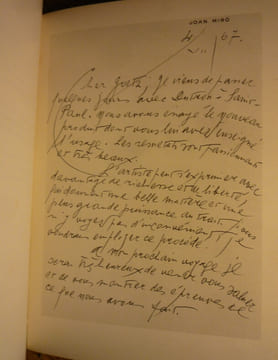 JOAN MIRÓ
4 67.
Cher Goetz, je viens de passer
quelques jours avec Dutrou à Saint-
Paul. Nous avons essayé le nouveau
produit dont vous lui avez enseigné
l'usage. Les résultats sont passionnants
et très beaux.
L'artiste peut s'exprimer avec
davantage de richesse et de liberté,
ça donne une belle matière et une
plus grande puissance au trait. Nous
n'y voyez pas d'inconvénient, je
voudrais employer ce procédé.
A mon prochain voyage je
serai très heureux de venir vous saluer
et de vous montrer des épreuves de
ce que nous avons fait.